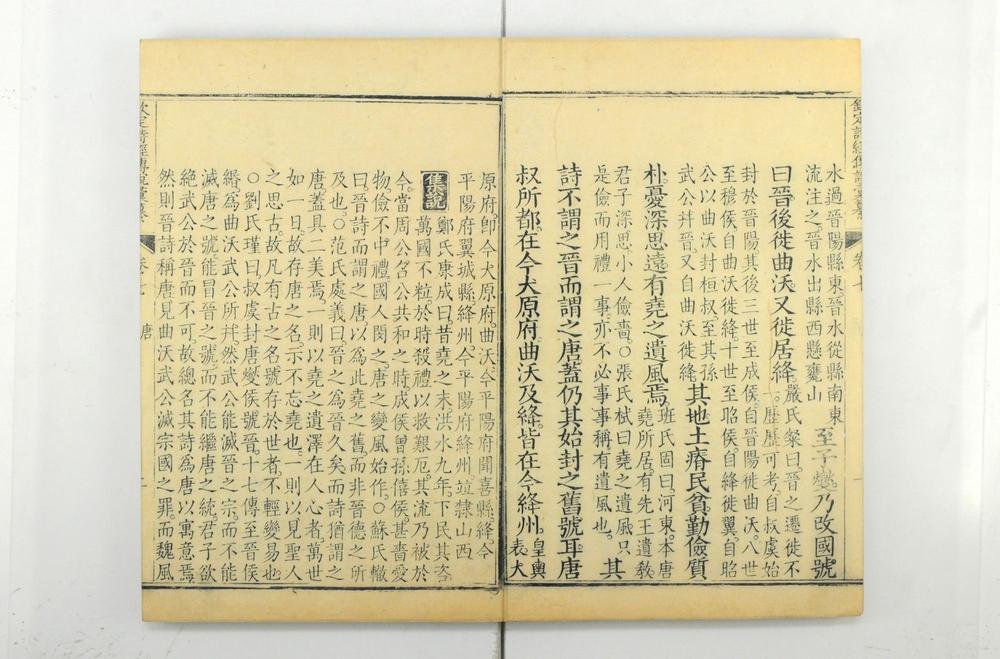 水過晉陽縣東晉水從縣南東
流注之晉水出縣西懸甕山
至子燮乃改國號
曰晉後徙曲沃又徙居絳
嚴氏粲曰晉之遷徙不
一歷歷可考自叔虞始
封於晉陽其後三世至成侯自晉陽徙曲沃八世
至穆侯自曲沃徙絳十世至昭侯自絳徙翼自昭
公以曲沃封桓叔至其孫
武公幷晉又自曲沃徙絳
其地土瘠民貧勤儉質
朴憂深思遠有堯之遺風焉
班氏固曰河東本唐
堯所居有先王遺敎
君子深思小人儉嗇○張氏栻曰堯之遺風只
是儉而用禮一事亦不必事事稱有遺風也
其
詩不謂之晉而謂之唐蓋仍其始封之舊號耳唐
叔所都在今大原府曲沃及絳皆在今絳州
皇輿
表大
原府卽今太原府曲沃今平陽府聞喜縣絳今
平陽府翼城縣絳州今平陽府絳州竝隸山西
集說
鄭氏康成曰昔堯之末洪水九年下民其咨
萬國不粒於時殺禮以救艱厄其流乃被於
今當周公召公共和之時成侯曾孫僖侯甚嗇愛
物儉不中禮國人閔之唐之變風始作○蘇氏轍
曰晉詩而謂之唐以為此堯之舊而非晉德之所
及也○范氏處義曰晉之為晉久矣而詩猶謂之
唐蓋具二美焉一則以堯之遺澤在人心者萬世
如一日故存唐之名示不忘堯也一則以見聖人
之思古故凡有古之名號存於世者不輕變易也
○劉氏瑾曰叔虞封唐燮侯號晉十七傳至晉侯
緡為曲沃武公所幷然武公能滅晉之宗而不能
滅唐之號能冒晉之號而不能繼唐之統君子欲
絕武公於晉而不可故總名其詩為唐以寓意焉
然則晉詩稱唐見曲沃武公滅宗國之罪而魏風
卷七
唐